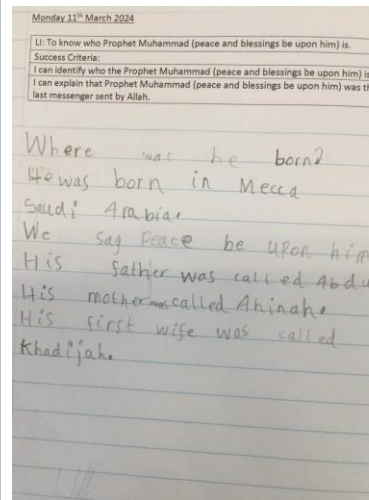 Monday 11th March 2024
LI: To know who Prophet Muhammad (peace and blessings be upon him) is.
Success Criteria:
I can identify who the Prophet Muhammad (peace and blessings be upon him) is
I can explain that Prophet Muhammad (peace and blessings be upon him) was th
last messenger sent by Allah.
Where was he born?
He was born in Mecca
Saudi Arabia.
We say Peace be upon him
His father was called Abdu
His mother was called Ahinah.
His first wife was called
Khadijah.